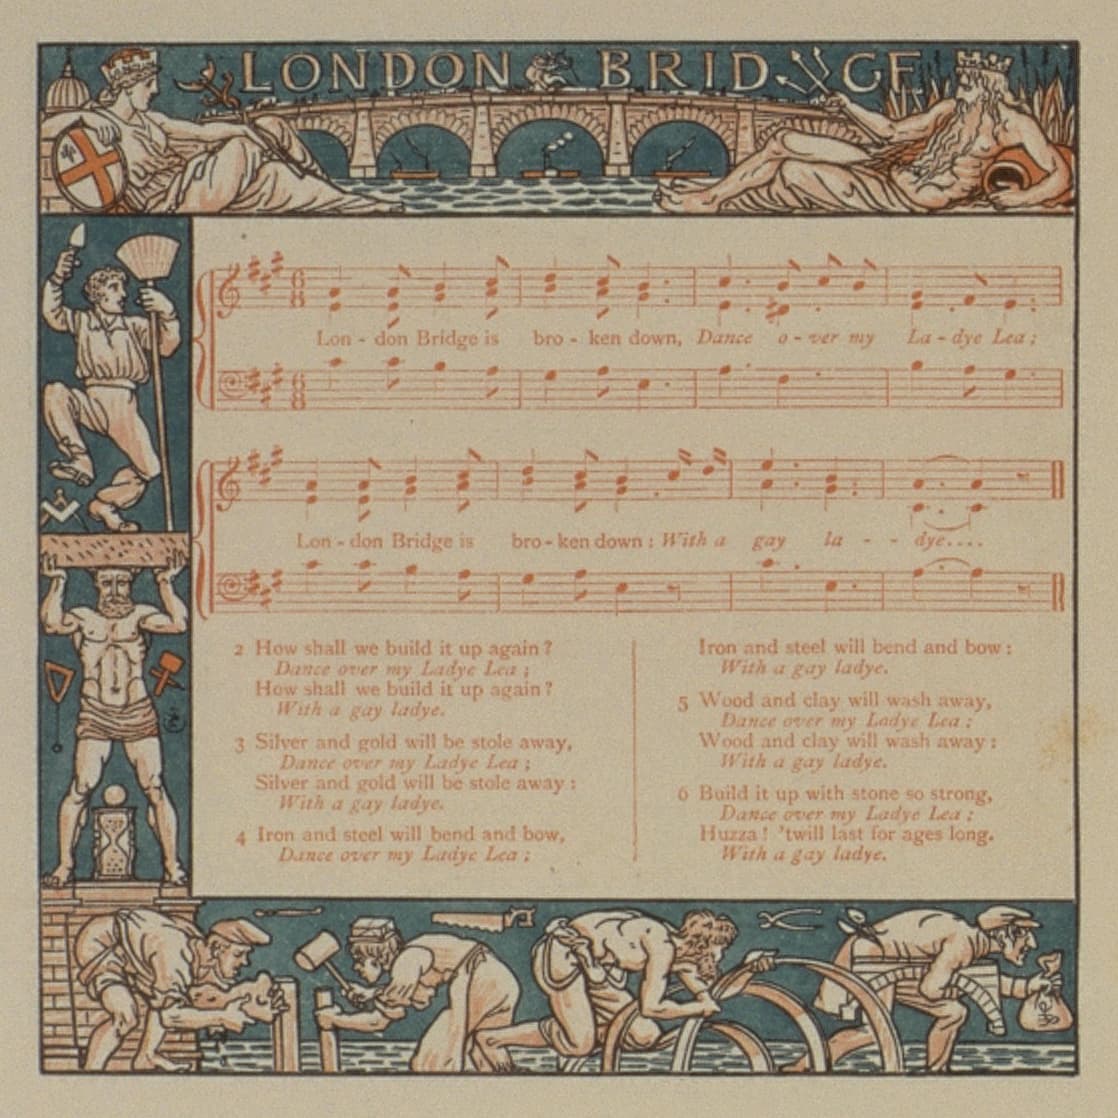 LONDON BRIDGE
Lon - don Bridge is bro - ken down, Dance o - ver my La - dye Lea ;
Lon - don Bridge is bro - ken down : With a gay la - - dye....
2 How shall we build it up again ?
Dance over my Ladye Lea ;
How shall we build it up again ?
With a gay ladye.
3 Silver and gold will be stole away,
Dance over my Ladye Lea ;
Silver and gold will be stole away :
With a gay ladye.
4 Iron and steel will bend and bow,
Dance over my Ladye Lea ;
Iron and steel will bend and bow :
With a gay ladye.
5 Wood and clay will wash away,
Dance over my Ladye Lea ;
Wood and clay will wash away :
With a gay ladye.
6 Build it up with stone so strong,
Dance over my Ladye Lea ;
Huzza ! 'twill last for ages long.
With a gay ladye.